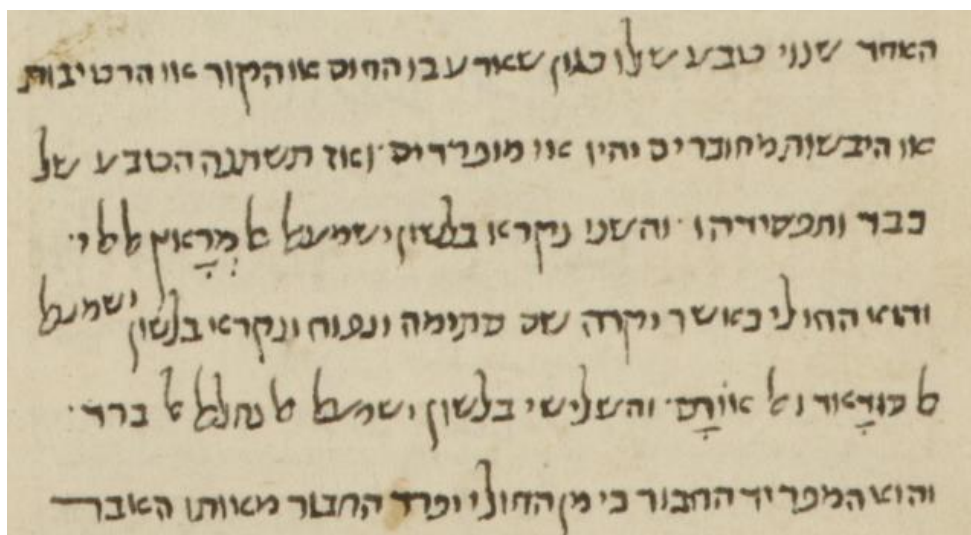 האחד שנוי טבע שלו כגון שארע בו החום או הקור או הרטיבות
או היבשות מחוברים יהיו או מופרדים ׳ ואז תשתנה הטבע של
כבד ותפסידהו ׳ והשני נקרא בלשון ישמעאל אל מְרָאץ אלאלי ׳
והוא החולי כאשר יקרה שם סתימה ונפוח ונקרא בלשון ישמעאל
אל סודָאוד ואל אוֹרָם ׳ והשלישי בלשון ישמעאל אל נחלאל אל ברד ׳
והוא המפריד החבור כי מן החולי יפרד החבור מאותו האבר